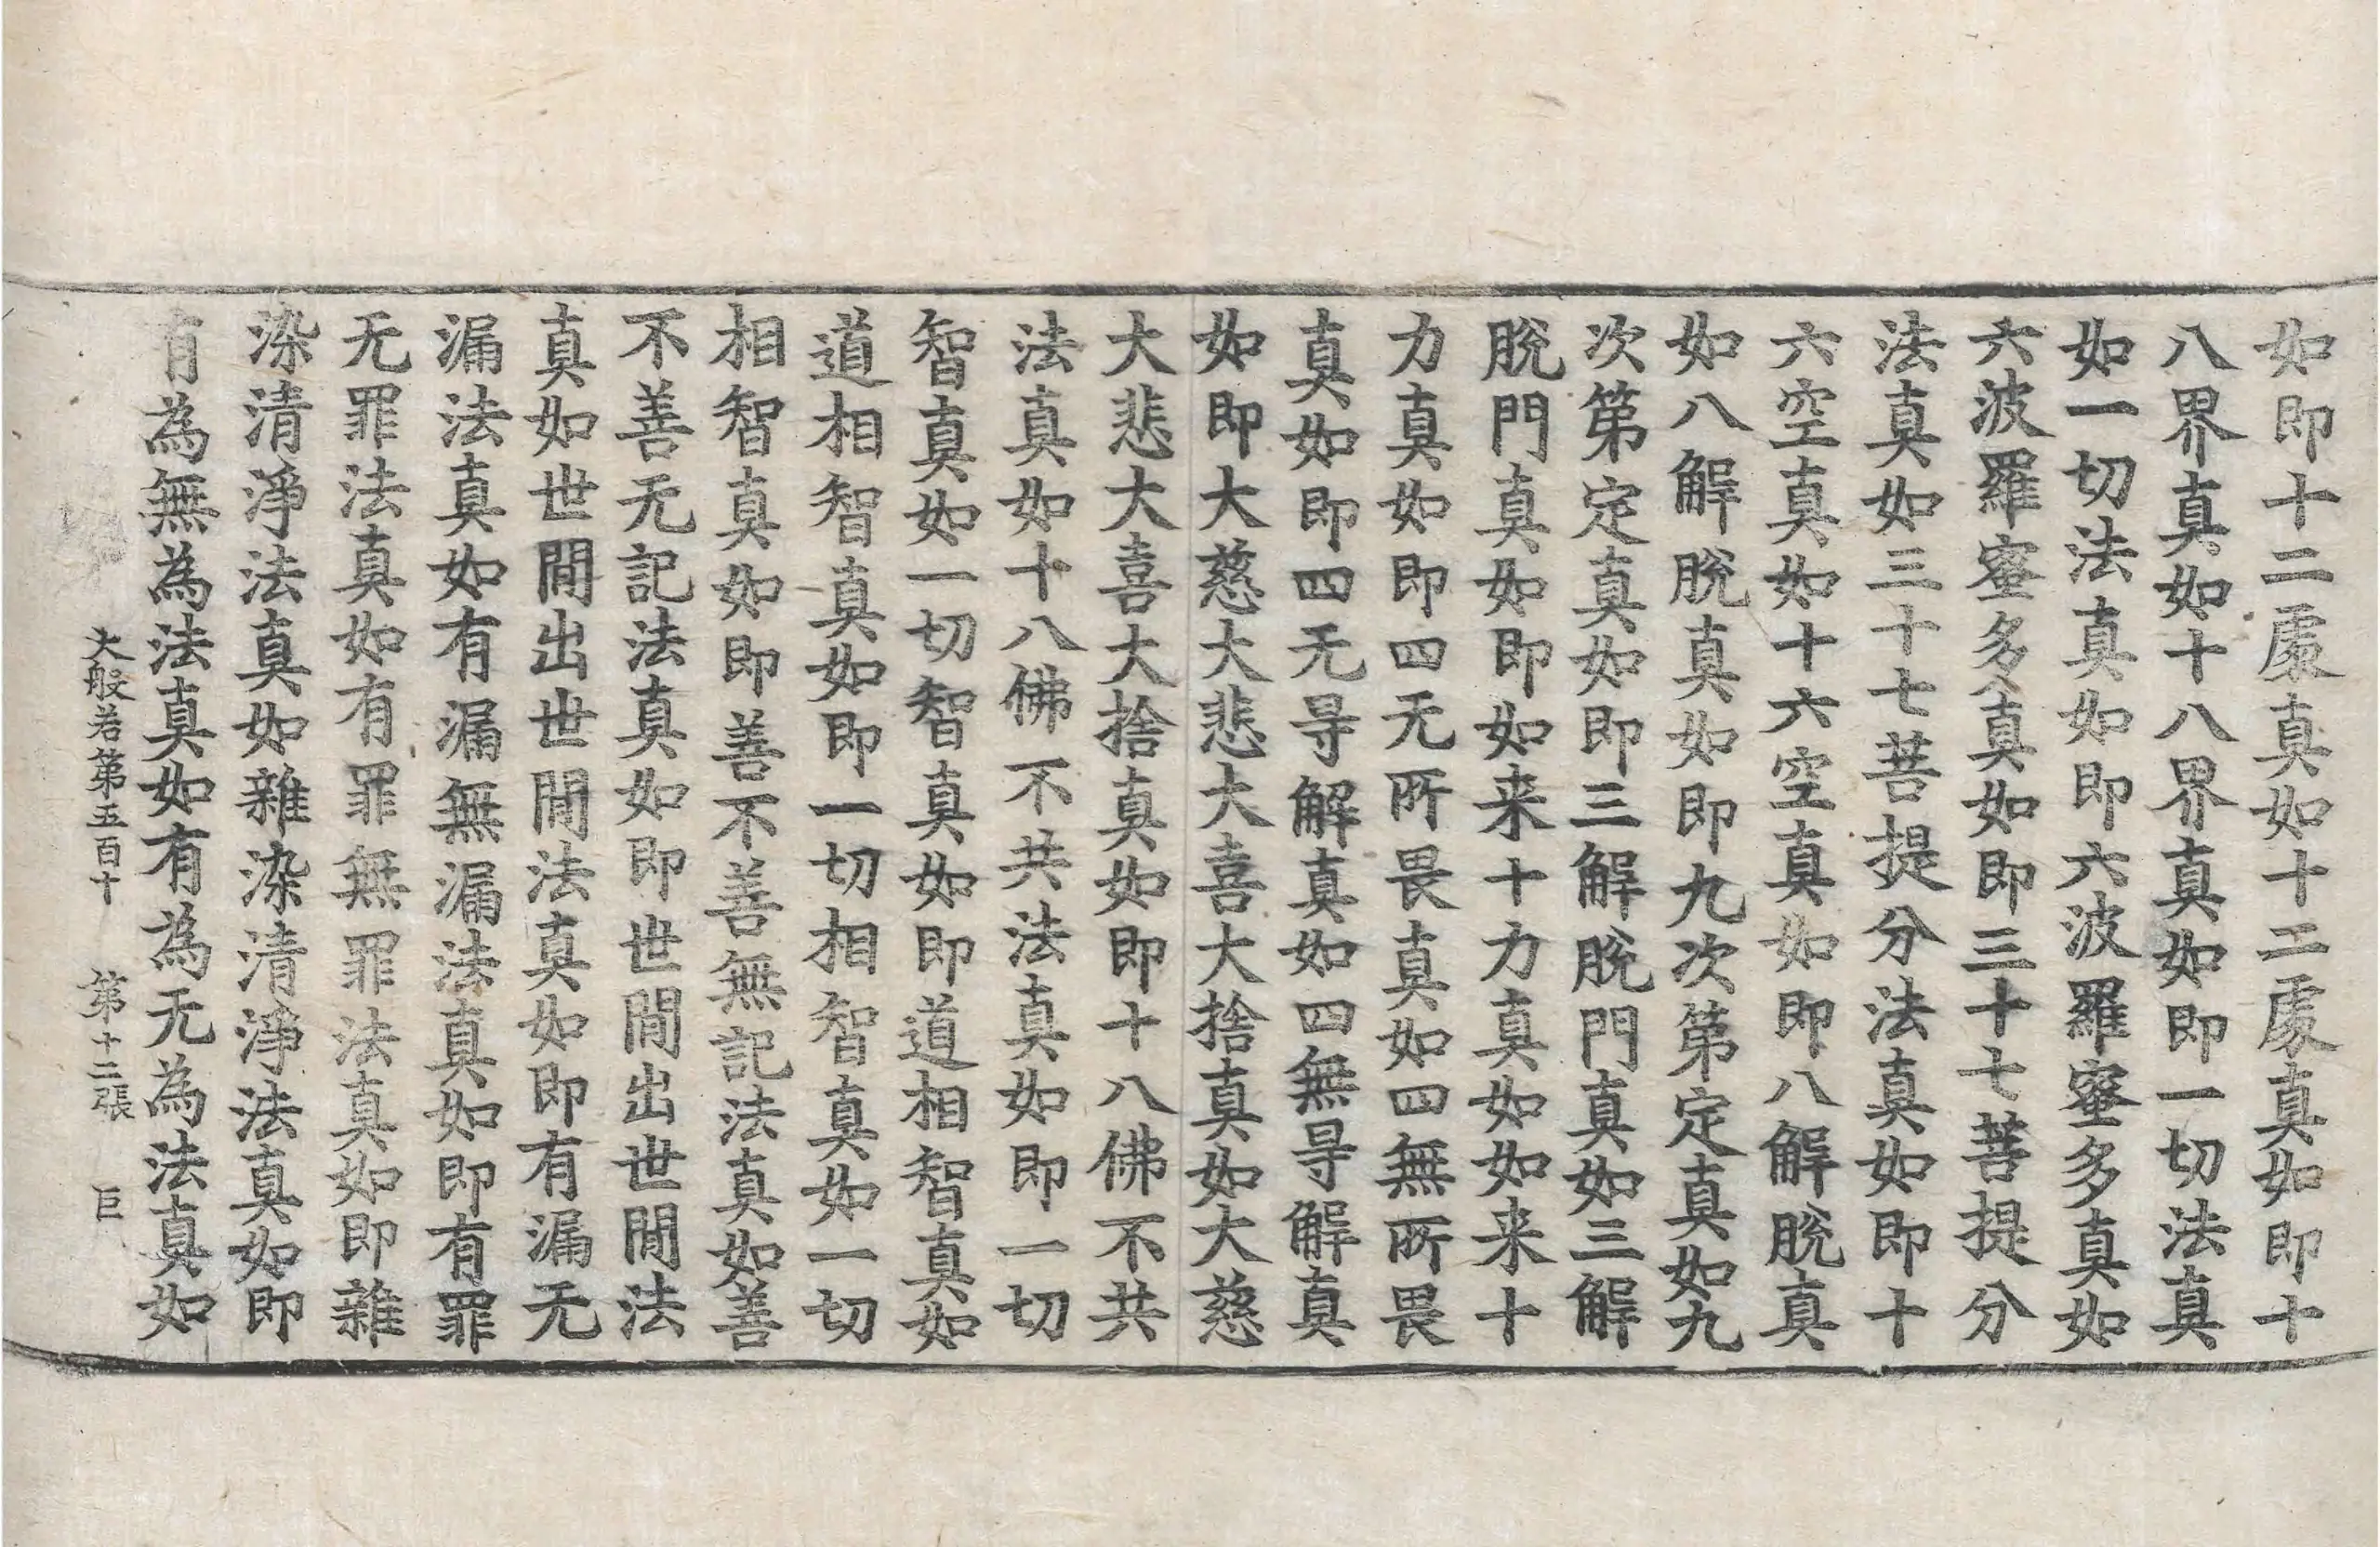 如即十二處真如十二處真如即十
八界真如十八界真如即一切法真
如一切法真如即六波羅蜜多真如
六波羅蜜多真如即三十七菩提分
法真如三十七菩提分法真如即十
六空真如十六空真如即八解脫真
如八解脫真如即九次第定真如九
次第定真如即三解脫門真如三解
脫門真如即如来十力真如如来十
力真如即四无所畏真如四無所畏
真如即四无㝵解真如四無㝵解真
如即大慈大悲大喜大捨真如大慈
大悲大喜大捨真如即十八佛不共
法真如十八佛不共法真如即一切
智真如一切智真如即道相智真如
道相智真如即一切相智真如一切
相智真如即善不善無記法真如善
不善无記法真如即世間出世間法
真如世間出世間法真如即有漏无
漏法真如有漏無漏法真如即有罪
无罪法真如有罪無罪法真如即雜
染清淨法真如雜染清淨法真如即
有為無為法真如有為无為法真如
大般若第五百十　第十二張　巨